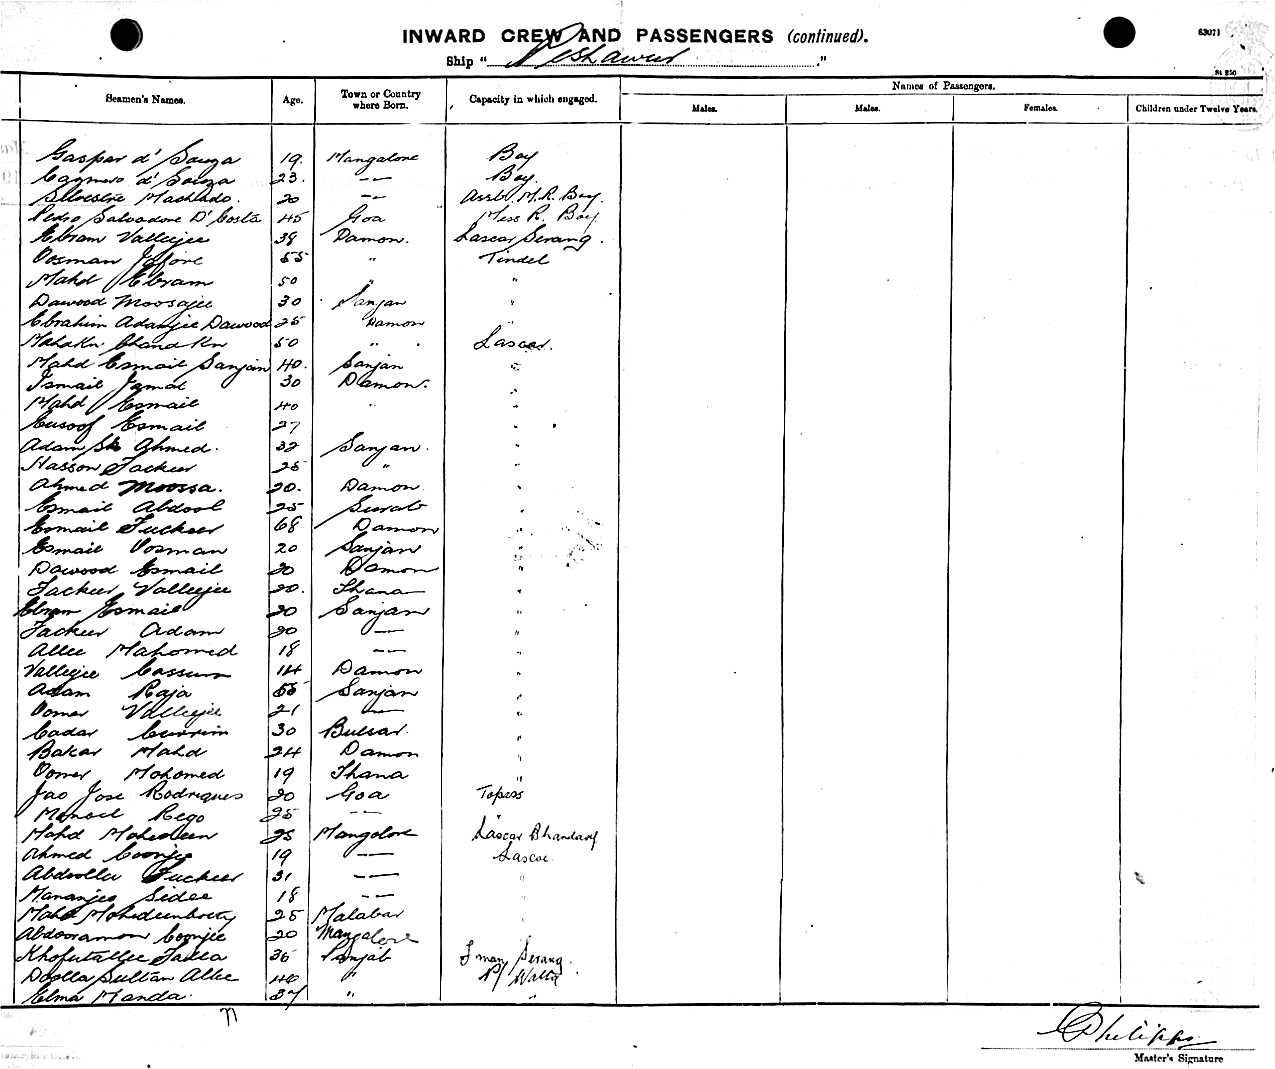 INWARD CREW AND PASSENGERS (continued).
63071
Ship " Peshawur "
Seamen's Names. Age. Town or Country where Born. Capacity in which engaged. Names of Passengers.
Males. Males. Females. Children under Twelve Years.
Gaspar d' Souza 19. Mangalore Boy
d' Souza 23. —"— Boy
Silvestre Machado. 20 —"— Asst. M. R. Boy.
Pedro Salvadore D' Costa 45 Goa Mess R. Boy
Ebram Valleejee 38 Damon. Lascar Serang.
Oosman 55 " Tindel
Mahd Ebram 50 " "
Dawood Moosajee 30 Sanjan "
Ebrahim Adamjee Dawood 25 Damon
Chand Kn 50 " Lascar.
Mahd Esmail Sanjan 40. Sanjan "
Ismail Jamal 30 Damon. "
Mahd Esmail 40 " "
Eusoof Esmail 27 "
Adam Sk Ahmed. 32 Sanjan. "
Hasson Fackeer 25 " "
Ahmed Moossa. 20. Damon. "
Esmail Abdool 25 Surat "
Esmail Fuckeer 68 Damon "
Esmail Oosman 20 Sanjan "
Dawood Esmail 20 Damon "
Fackeer Valleejee 20. Thana "
Ebram Esmail 20 Sanjan "
Fackeer Adam 20 —"— "
Allee Mahomed 18 —"— "
Valleejee Cassum 14 Damon "
Adam Raja 55 Sanjan "
Oomer Valleejee 21 —"— "
Cadar Currim 30 Bulsar. "
Bakar Mahd 24 Damon "
Oomer Mohomed 19 Thana "
Jao Jose Rodrigues 20 Goa Topass
Manoel Rego 25 —"—
Mahd Mohedeen 25 Mangalore Lascar Bhandary
Ahmed Coonjee 19 —"— Lascar
Abdoolla Fuckeer 31 —"— "
Sidee 18 —"— "
Mahd 25 Malabar "
Abdooramon Coonjee 20 Mangalore
35 Punjab Fireman Serang.
Doolla Sultan Allee 40 "
Elma Manda. 37 " "
n
Philipps
Master's Signature